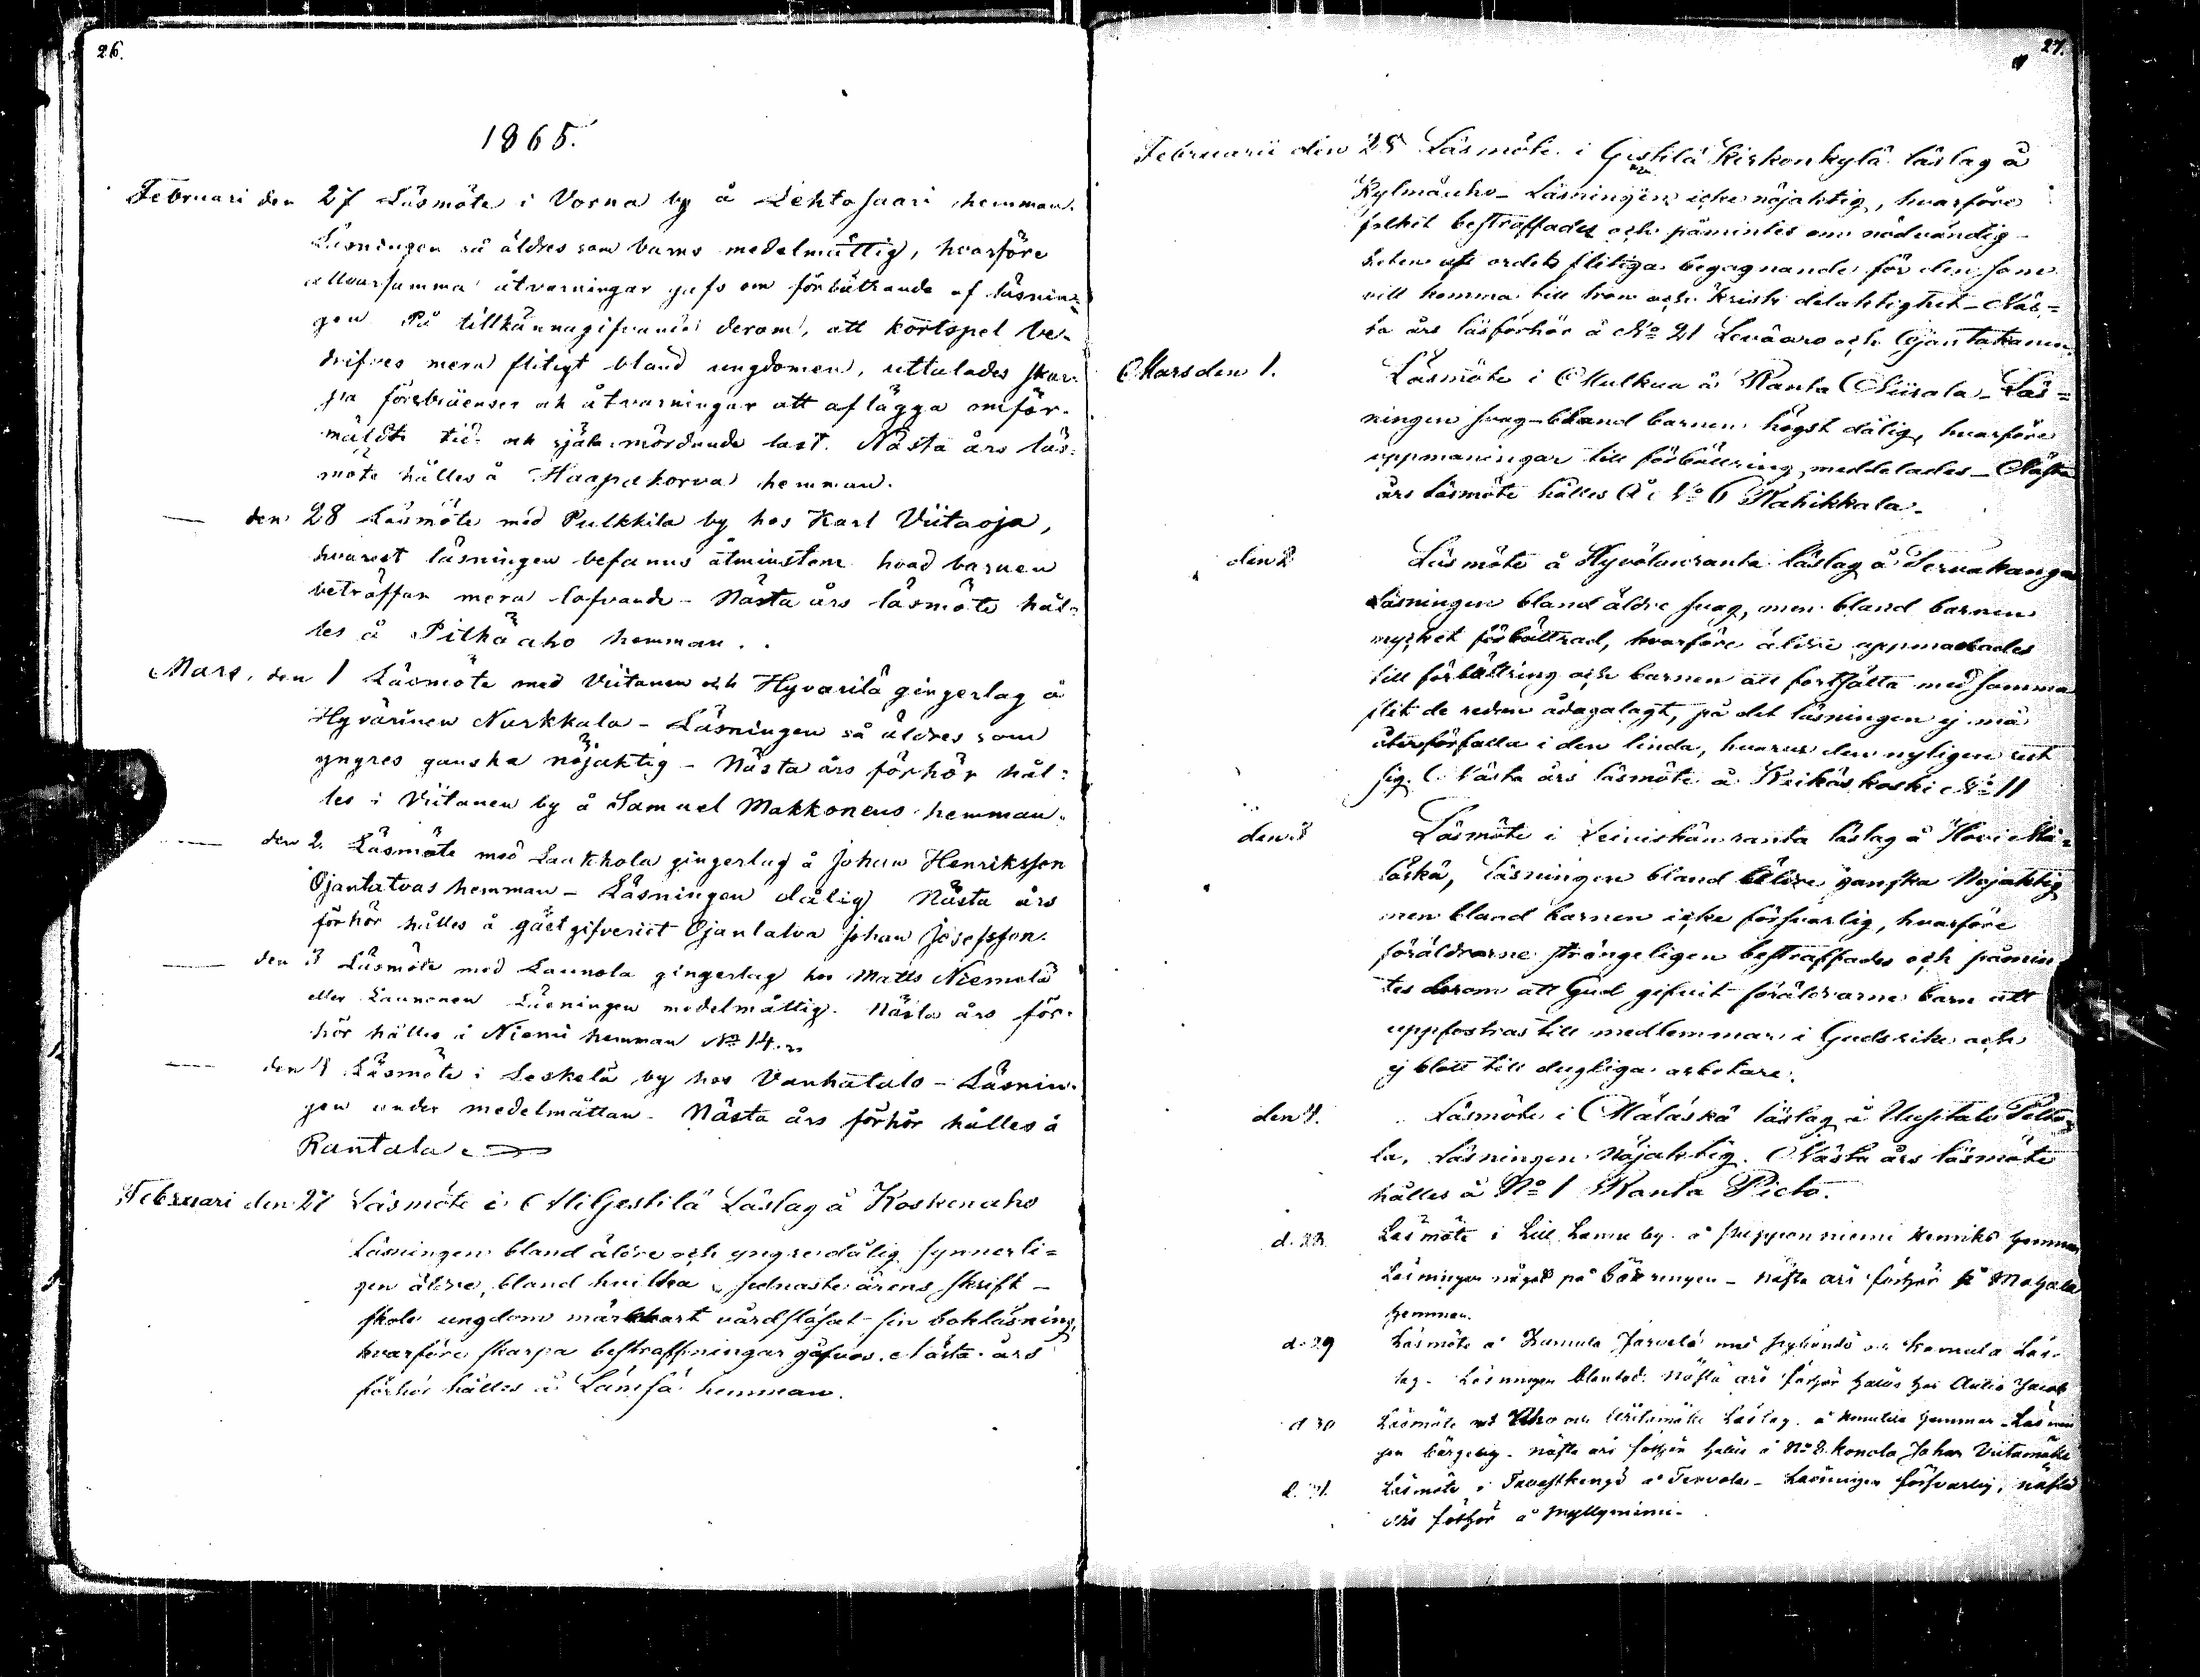 26.
1865.
Februari den 27 Läsmöte i Vorna by å Lehtosaari hemman.
Läsningen så äldres som barns medelmåttig, hvarföre
allvarsamma åtvarningar gafs om förbättrande af läsnin-
gen. På tillkännagifvande derom, att kortspel be-
drifves mera flitigt bland ungdomen, uttalades skar-
pa förebråenser och åtvarningar att aflägga omför-
mäldte tid- och själamördande last. Nästa års läs-
möte hålles å Haapakorva hemman.
— den 28 Läsmöte med Pulkkila by hos Karl Viitaoja,
hvarest läsningen befanns åtminstone hvad barnen
beträffar mera lofvande - Nästa års läsmöte hål-
les å Pitkäaho hemman.
Mars, den 1 Läsmöte med Viitanen och Hyvärilä gingerlag å
Hyvärinen Nurkkala - Läsningen så äldres som
yngres ganska nöjaktig - Nästa års förhör hål-
les i Viitanen by å Samuel Makkonens hemman.
— den 2. Läsmöte med Laukkola gingerlag å Johan Henriksson
Ojantatvas hemman - Läsningen dålig. Nästa års
förhör hålles å gästgifveriet Ojantatva Johan Josefsson.
— den 3 Läsmöte med Launola gingerlag hos Matts Niemelä
eller Launonen Läsningen medelmåttig. Nästa års för-
hör hålles å Niemi hemman No 14.
— den 4 Läsmöte i Leskelä by hos Vanhatalo - Läsnin-
gen under medelmåttan. Nästa års förhör hålles å
Rantala.
Februari den 27 Läsmöte i Gestilä Läslag å Koskenaho
Läsningen bland äldre och yngre dålig synnerli=
gen äldre, bland hvilka sednaste årens skrift-
skole ungdom märkbart vårdslösat sin bokläsning,
hvarföre skarpa bestraffningar gåfvos. Nästa års
förhör hålles å Lämsä hemman.
27.
Februarii den 28 Läsmöte i Gestilä Kirkonkylä läslag å
Kylmäaho - Läsningen icke nöjaktig, hvarföre
folket bestraffades och påmintes om nödvändig-
heten af ordets flitiga begagnande för den som
vill komma till tron och Kristi delaktighet - Näs-
ta års läsförhör å No 21 Levåaro och Ojantakanen.
Mars den 1. Läsmöte i Mulkua å Ranta Siirala - Läs=
ningen svag - bland barnen högst dålig, hvarföre
uppmaningar till förbättring meddelades - Nästa
års läsmöte hålles å No 6 Rahikkala.
den 2 Läsmöte å Hyvölänranta läslag å Servakanga
Läsningen bland äldre svag, men bland barnen
mycket förbättrad, hvarföre äldre uppmanades
till förbättring och barnen att fortsätta med samma
flit de redan ådagalagt, på det läsningen ej må
återförfalla i den linda, hvarur den nyligen rest
sig. Nästa års läsmöte å Keikäskoski No 11
den 3 Läsmöte i Leiviskänranta läslag å Hovi Mä-
läskä, läsningen bland äldre ganska nöjaktig
men bland barnen icke försvarlig, hvarföre
föräldrarne strängeligen bestraffades och påmin-
tes derom att Gud gifvit föräldrarne barn att
uppfostras till medlemmar i Guds rike och
ej blott till dugliga arbetare.
den 4. Läsmöte i Mäläskä läslag å Uusitalo Pelto-
la, Läsningen nöjaktig. Nästa års läsmöte
hålles å No 1 Ranta Pieto.
d. 28. Läsmöte i Lill Lamu by å niemi Henriks hemman
Läsningen något på bättringen - nästa års förhör på Mahala
hemman.
d. 29 Läsmöte å Lamula Järvelä med och Kamula Läs-
lag. Läsningen blandad. Nästa års förhör hålles hos Antio Jacob
d 30 Läsmöte med Aho och Viitamäki Läslag å hemman - Läsnin
gen bärgelig - nästa års förhör hålles å No 8 Konola Johan Viitamäki
d. 31. Läsmöte i Tavastkengö å Tervola - Läsningen försvarlig, nästa
års förhör å Myllyniemi.